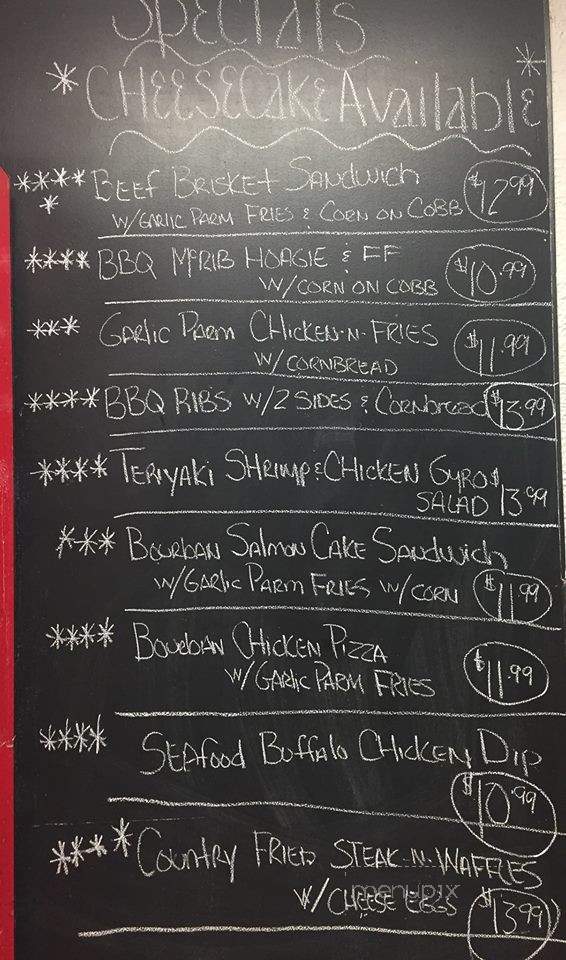 Specials
* CHEESECake Available *
**** BEEF BRISKET SANDWICH $12.99
* W/GARLIC PARM FRIES & CORN ON COBB
**** BBQ McRIB HOAGIE & FF $10.99
W/CORN ON COBB
*** GARLIC PARM CHICKEN-N-FRIES $11.99
W/CORNBREAD
**** BBQ RIBS W/2 SIDES & Cornbread $13.99
**** TERIYAKI SHRIMP & CHICKEN GYRO
SALAD $13.99
*** BOURBAN SALMON CAKE SANDWICH
W/GARLIC PARM FRIES W/CORN $11.99
**** BOURBAN CHICKEN PIZZA
W/GARLIC PARM FRIES $11.99
**** SEAFOOD BUFFALO CHICKEN DIP
$10.99
**** COUNTRY FRIED STEAK-N-WAFFLES
W/CHEESE EGGS $13.99
menupix